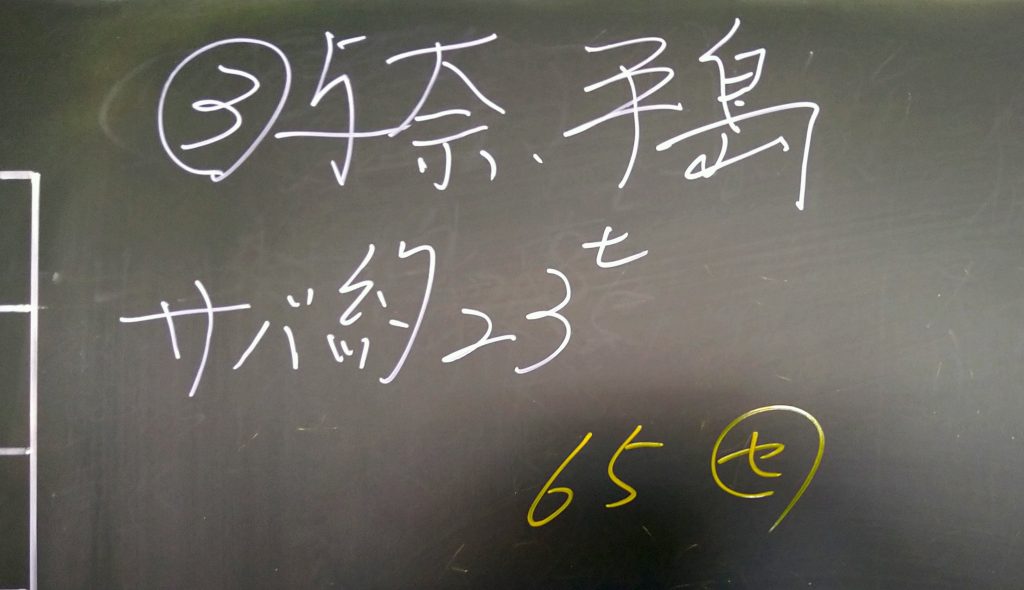 ③与奈、平島
サバ約23t
65㋝